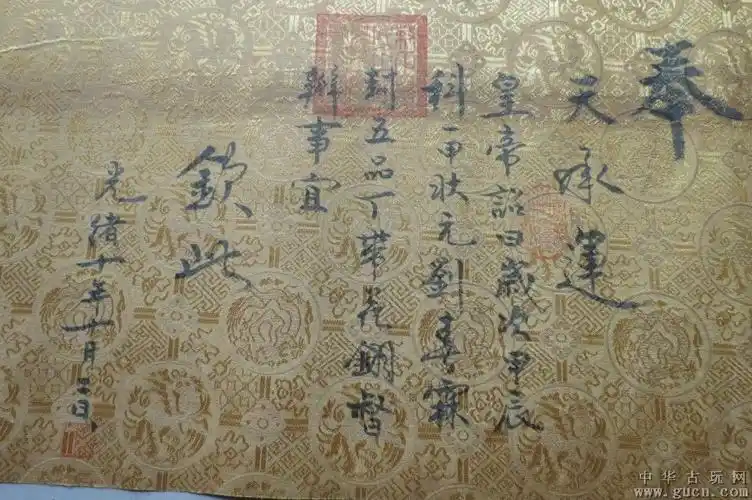 奉
天承運
皇帝詔曰歲次甲辰
科一甲狀元劉春霖
封五品丁带花翎督
辦事宜
欽此
光緒十年十月日
中华古玩网
www.gucn.com